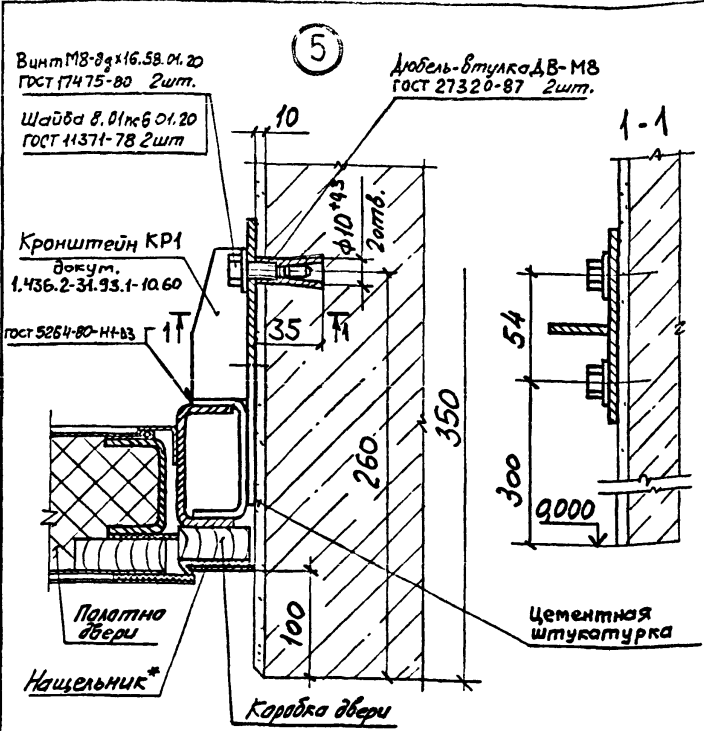 5
Винт М8-8gх16.58.01.20
ГОСТ 17475-80 2шт.
Шайба 8.01пс6 01.20
ГОСТ 11371-78 2шт
Дюбель-втулка ДВ-М8
ГОСТ 27320-87 2шт.
10
1-1
ф10+43
2отв.
Кронштейн КР1
докум.
1.436.2-31.93.1-10.60
ГОСТ 5264-80-Н1-▷3
1
35
1
54
350
260
300
0,000
100
Полотно
двери
Нащельник*
Коробка двери
Цементная
штукатурка